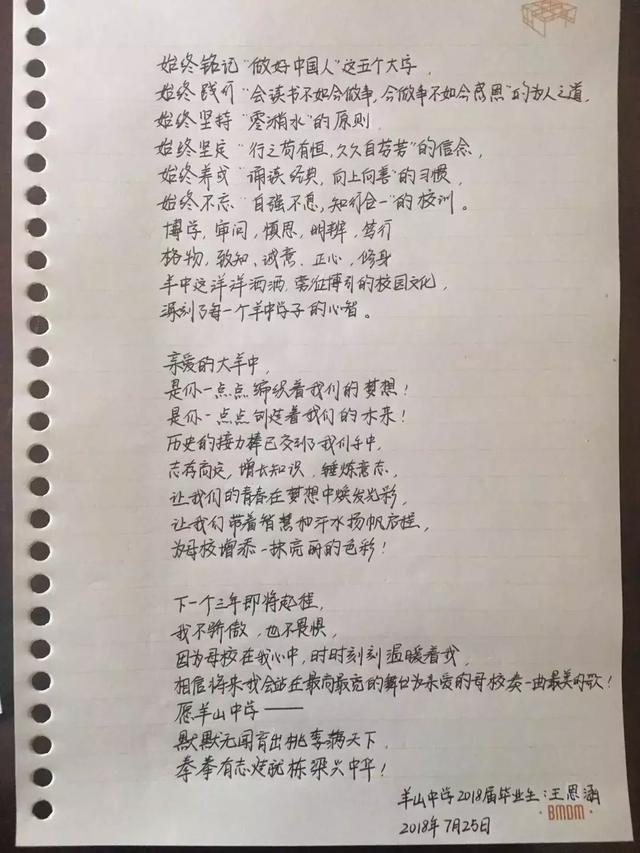 始终铭记“做好中国人”这五个大字，
始终践行“会读书不如会做事，会做事不如会感恩”的为人之道，
始终坚持“零浪水”的原则，
始终坚定“行之苟有恒，久久自芬芳”的信念，
始终养成“诵读经典，向上向善”的习惯，
始终不忘“自强不息，知行合一”的校训。
博学，审问，慎思，明辨，笃行
格物，致知，诚意，正心，修身
羊中这洋洋洒洒，旁征博引的校园文化，
深刻了每一个羊中学子的心智。
亲爱的大羊中，
是你一点点编织着我们的梦想！
是你一点点创造着我们的未来！
历史的接力棒已交到了我们手中，
志存高远，增长知识，锤炼意志，
让我们的青春在梦想中焕发光彩，
让我们带着智慧和汗水扬帆启程，
为母校增添一抹亮丽的色彩！
下一个三年即将起程，
我不骄傲，也不畏惧，
因为母校在我心中，时时刻刻温暖着我，
相信将来我会站在最高最亮的舞台为亲爱的母校奏一曲最美的歌！
愿羊山中学——
默默无闻育出桃李满天下，
拳拳有志造就栋梁兴中华！
羊山中学2018届毕业生：王恩涵
2018年7月25日
BMDM